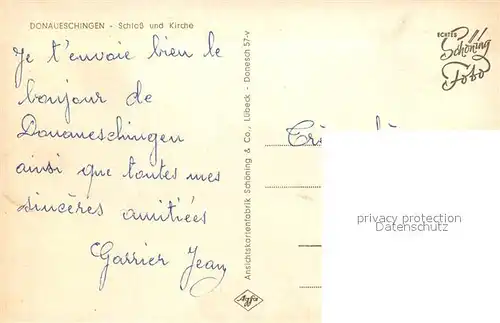 DONAUESCHINGEN - Schloß und Kirche
Je t'envoie bien le
bonjour de
Donaueschingen
ainsi que toutes mes
sincères amitiées
Garrier Jean
Ansichtskartenfabrik Schöning & Co., Lübeck - Donesch 57-v
Agfa
ECHTES
Schöning
Foto
privacy protection
Datenschutz